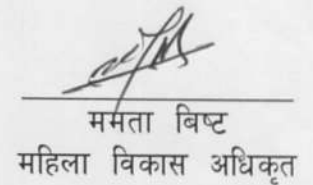 ममता बिष्ट
महिला विकास अधिकृत